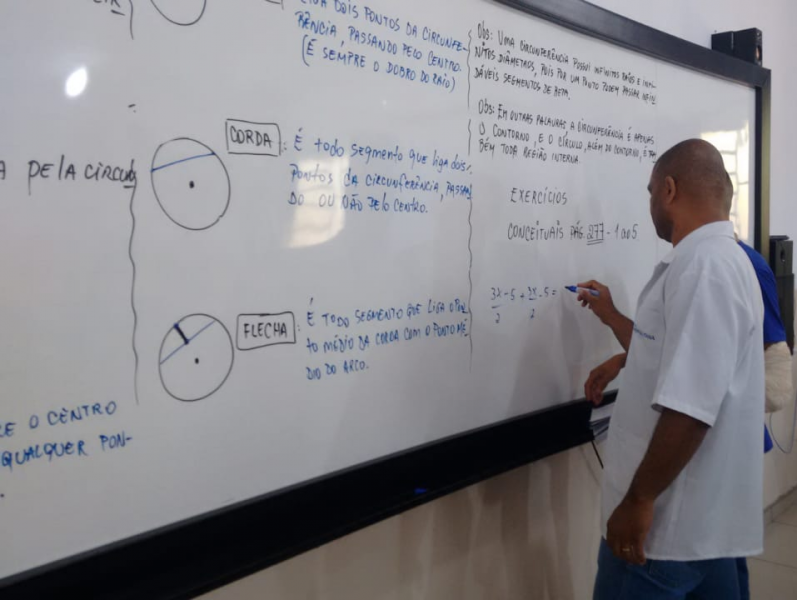 LIGA DOIS PONTOS DA CIRCUNFE-
RÊNCIA, PASSANDO PELO CENTRO.
(É SEMPRE O DOBRO DO RAIO)
A PELA CIRCUN
CORDA : É todo segmento que liga dois
PONTOS DA CIRCUNFERÊNCIA, PASSAN
DO OU NÃO PELO CENTRO.
FLECHA : É TODO SEGMENTO QUE LIGA O PON-
TO MÉDIO DA CORDA COM O PONTO MÉ
DIO DO ARCO.
O CENTRO
QUALQUER PON-
Obs: UMA CIRCUNFERÊNCIA POSSUI INFINITOS RAIOS E INFI-
NITOS DIÂMETROS, POIS POR UM PONTO PODEM PASSAR INFINI
DÁVEIS SEGMENTOS DE RETA.
Obs: EM OUTRAS PALAVRAS A CIRCUNFERÊNCIA É APENAS
O CONTORNO, E O CÍRCULO, ALÉM DO CONTORNO, É TAM
BÉM TODA REGIÃO INTERNA.
EXERCÍCIOS
CONCEITUAIS PÁG. 277 - 1 ao 5
3x - 5 + 3x - 5 =
2 2